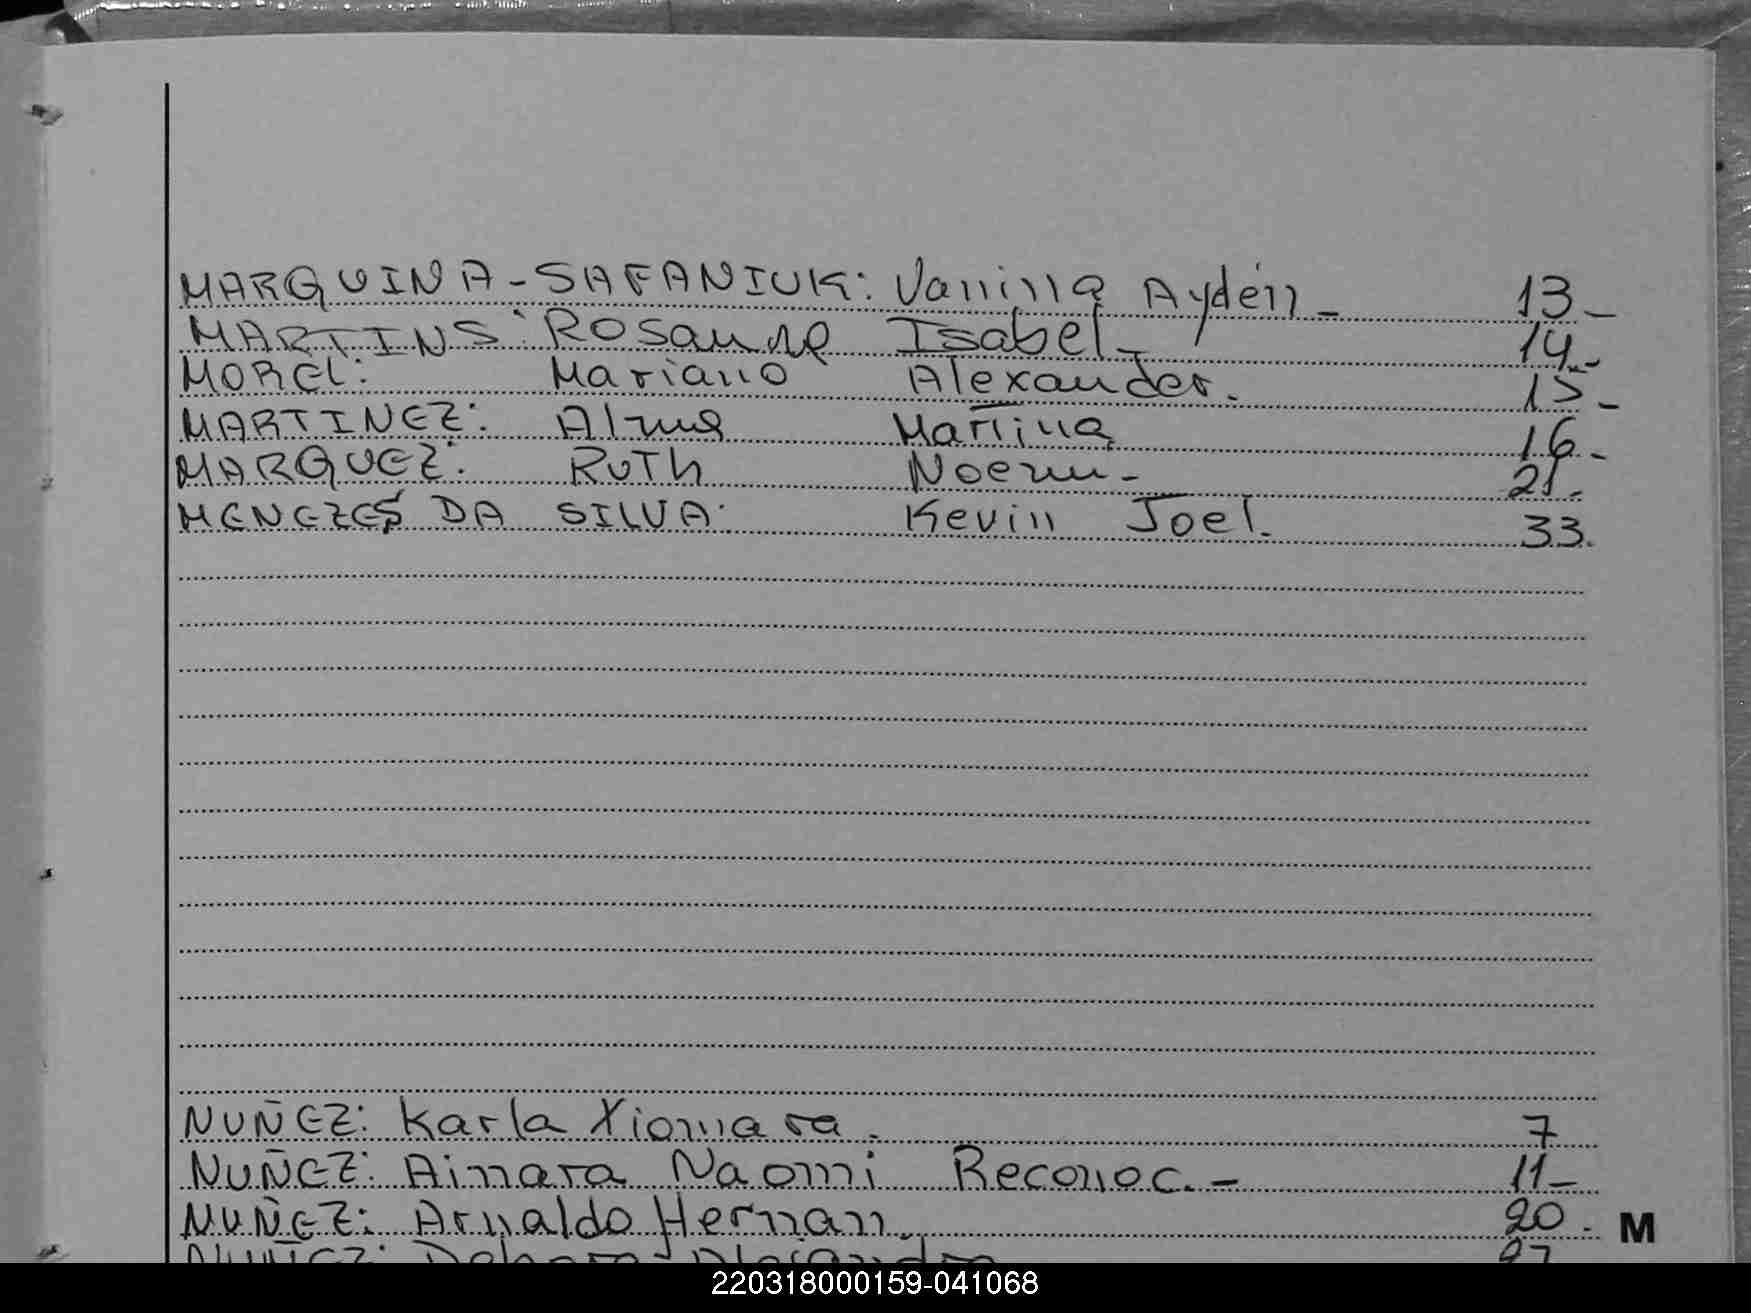 MARQUINA-SAFANIUK: Vanina Aydén - 13-
MARTINS: Rosaura Isabel - 14-
MOREL: Mariano Alexander. 15-
MARTINEZ: Alma Martina 16-
MARQUEZ: RUTH Noemi - 21.
MENEZES DA SILVA: Kevin Joel. 33.
NUÑEZ: Karla Xiomara. 7
NUÑEZ: Ainara Naomi Reconoc. - 11-
NUÑEZ: Arnaldo Hernan. 20. M
NUÑEZ: 27
220318000159-041068